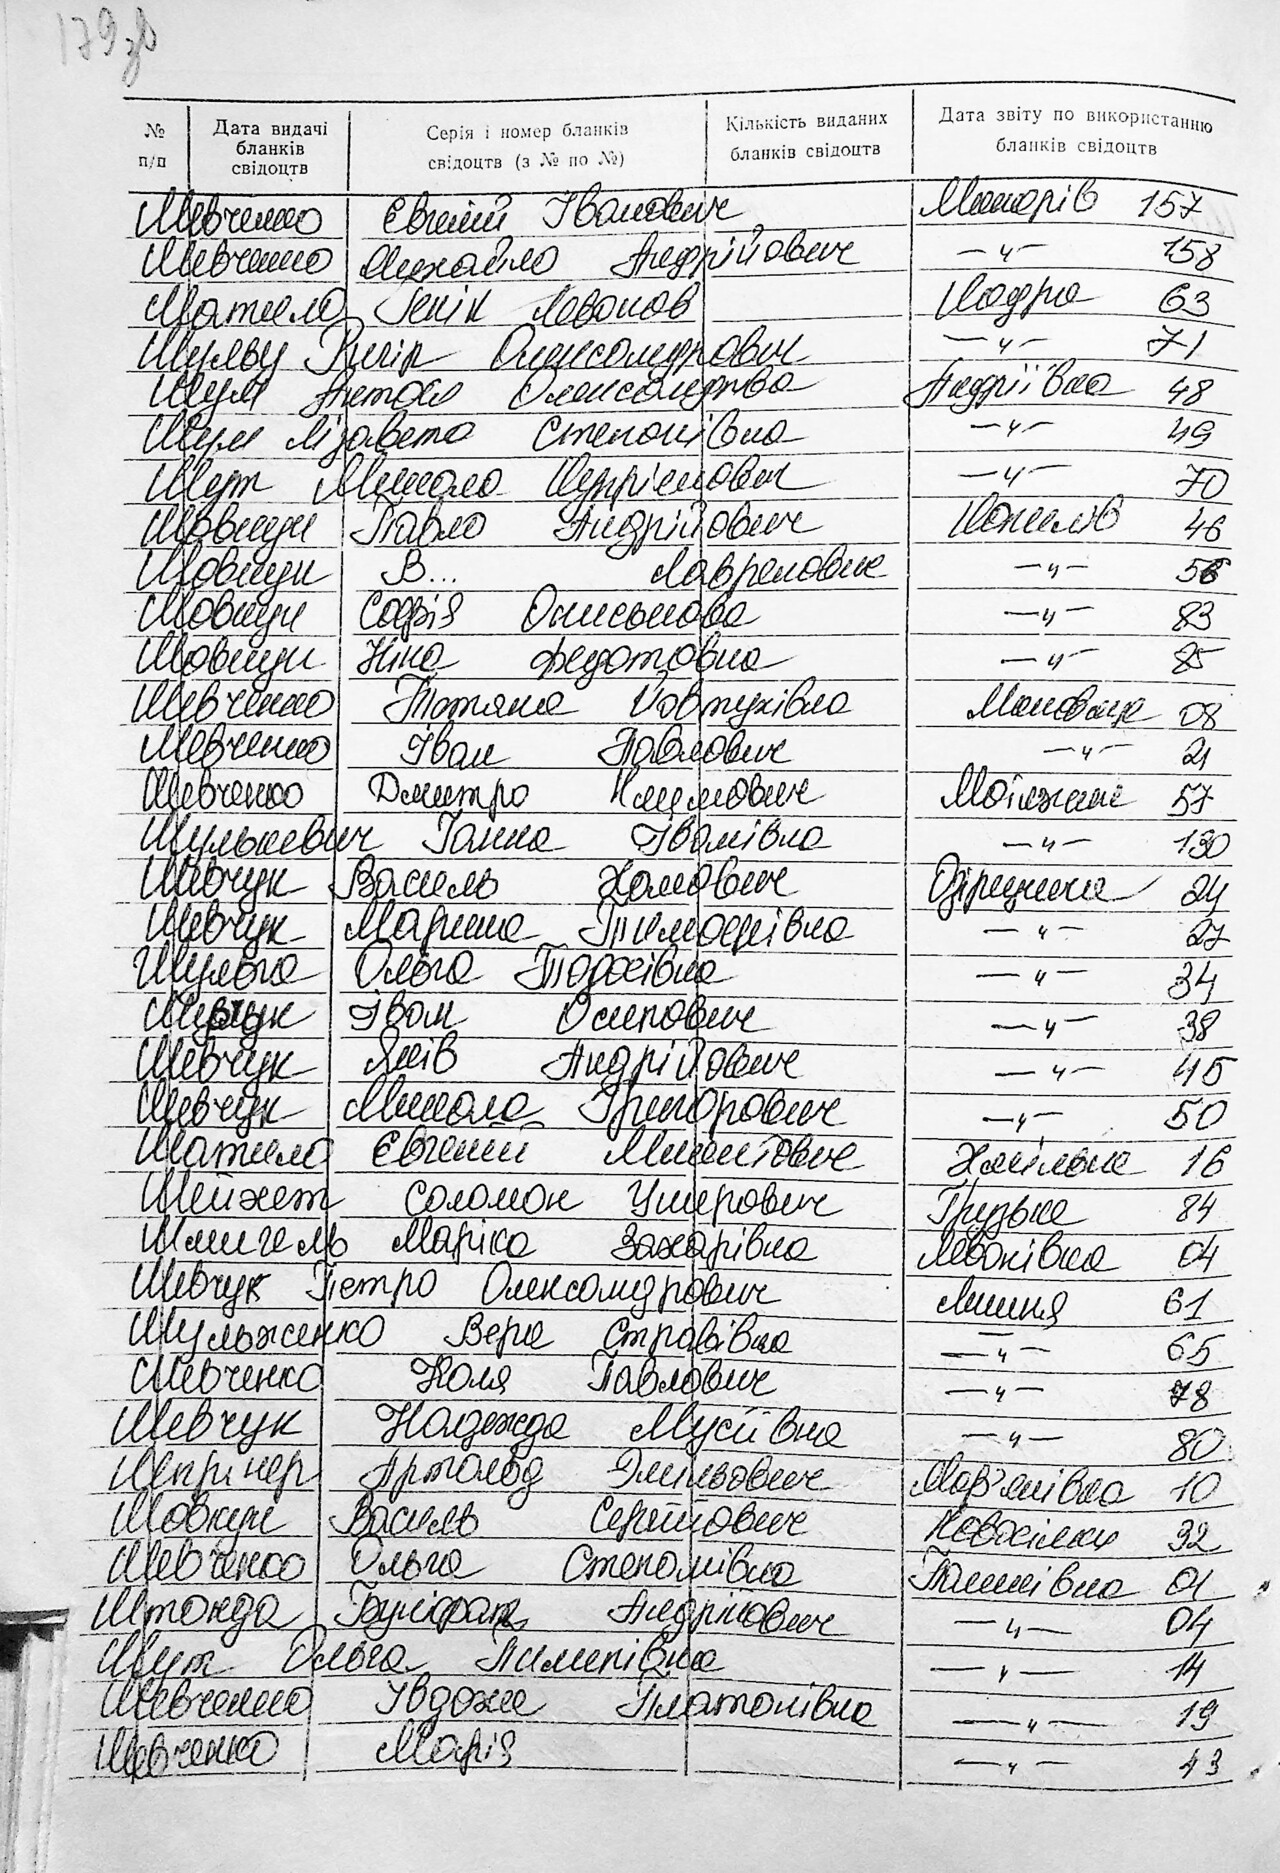 179 зв
№ п/п Дата видачі бланків свідоцтв Серія і номер бланків свідоцтв (з № по №) Кількість виданих бланків свідоцтв Дата звіту по використанню бланків свідоцтв
Шевченко Євгеній Іванович Макарів 157
Шевченко Михайло Андрійович —"— 158
Шатило Генік 63
Шульга Олександрович —"— 71
Шум Олександрівна Андріївка 48
Шум Лізавета Степанівна —"— 49
Шут Микола —"— 70
Шовкун Павло Андрійович Копилів 46
Шовкун В... —"— 56
Шовкун Софія —"— 83
Шовкун Ніна Федотовна —"— 85
Шевченко Тетяна Явтухівна Маковище 08
Шевченко Іван Павлович —"— 21
Шевченко Дмитро Климович Мотижин 57
Шулькевич Ганна Іванівна —"— 130
Шевчук Василь Хомович 24
Шевчук Марина Тимофіївна —"— 27
Шульга Ольга Тарасівна —"— 34
Іван Осипович —"— 38
Шевчук Яків Андрійович —"— 45
Шевчук Микола Григорович —"— 50
Шатило Євгеній Микитович Хмільна 16
Шейхет Соломон Ушерович Грузьке 84
Шмигель Маріка Захарівна Леонівка 04
Шевчук Пєтро Олександрович Лишня 61
Шульженко Вера —"— 65
Шевченко Коля Павлович —"— 78
Шевчук Надежда Мусіївна —"— 80
Шпрінер Арнольд Эмильович Мар'янівка 10
Шовкун Василь Сергійович Новосілки 32
Шевченко Ольга Степанівна Пашківка 01
Штонда Андрійович —"— 04
Шут Ольга Пилипівна —"— 14
Шевченко Івдоха Платонівна —"— 19
Шевченко Марія —"— 43